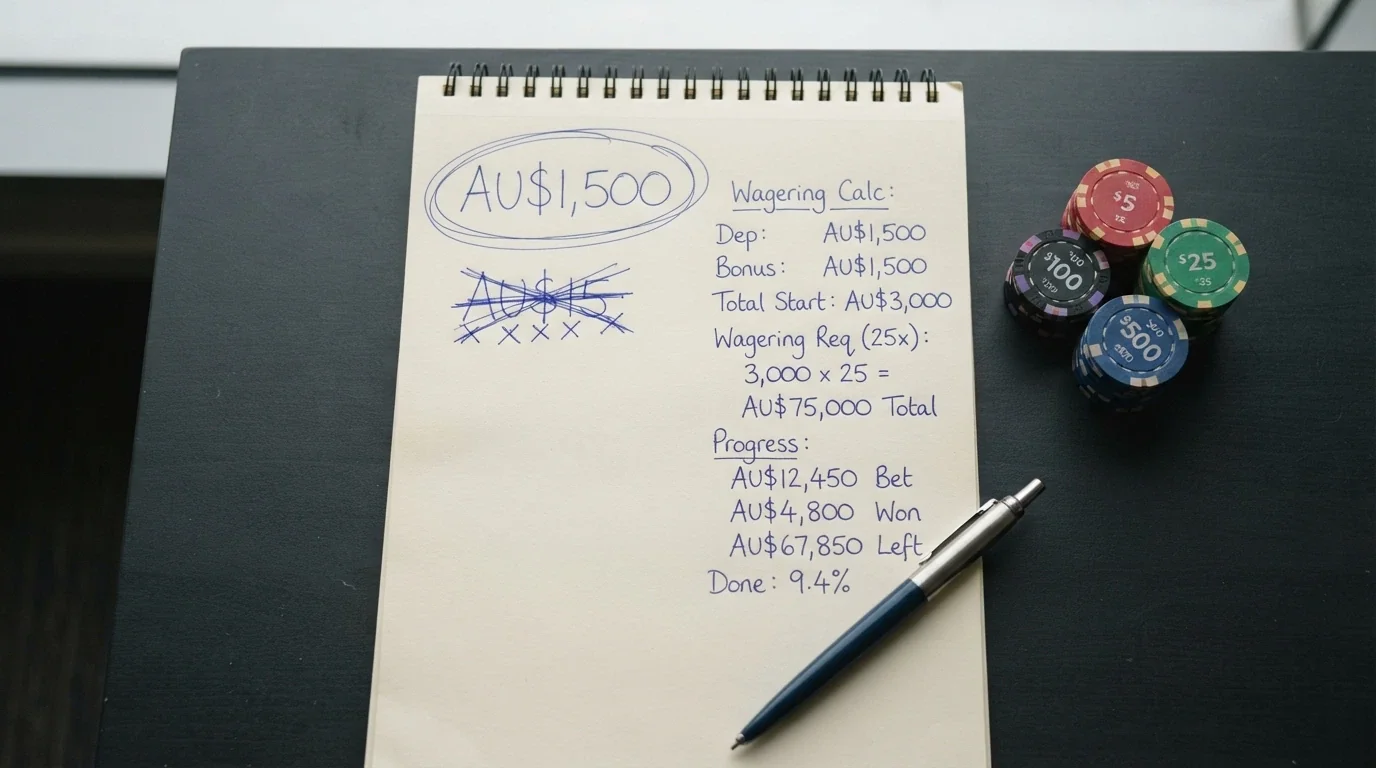 AU$1,500
AU$15
x x x x x
Wagering Calc:
Dep: AU$1,500
Bonus: AU$1,500
Total Start: AU$3,000
Wagering Req (25x):
3,000 x 25 =
AU$75,000 Total
Progress:
AU$12,450 Bet
AU$4,800 Won
AU$67,850 Left
Done: 9.4%
$5
$100
$25
$500